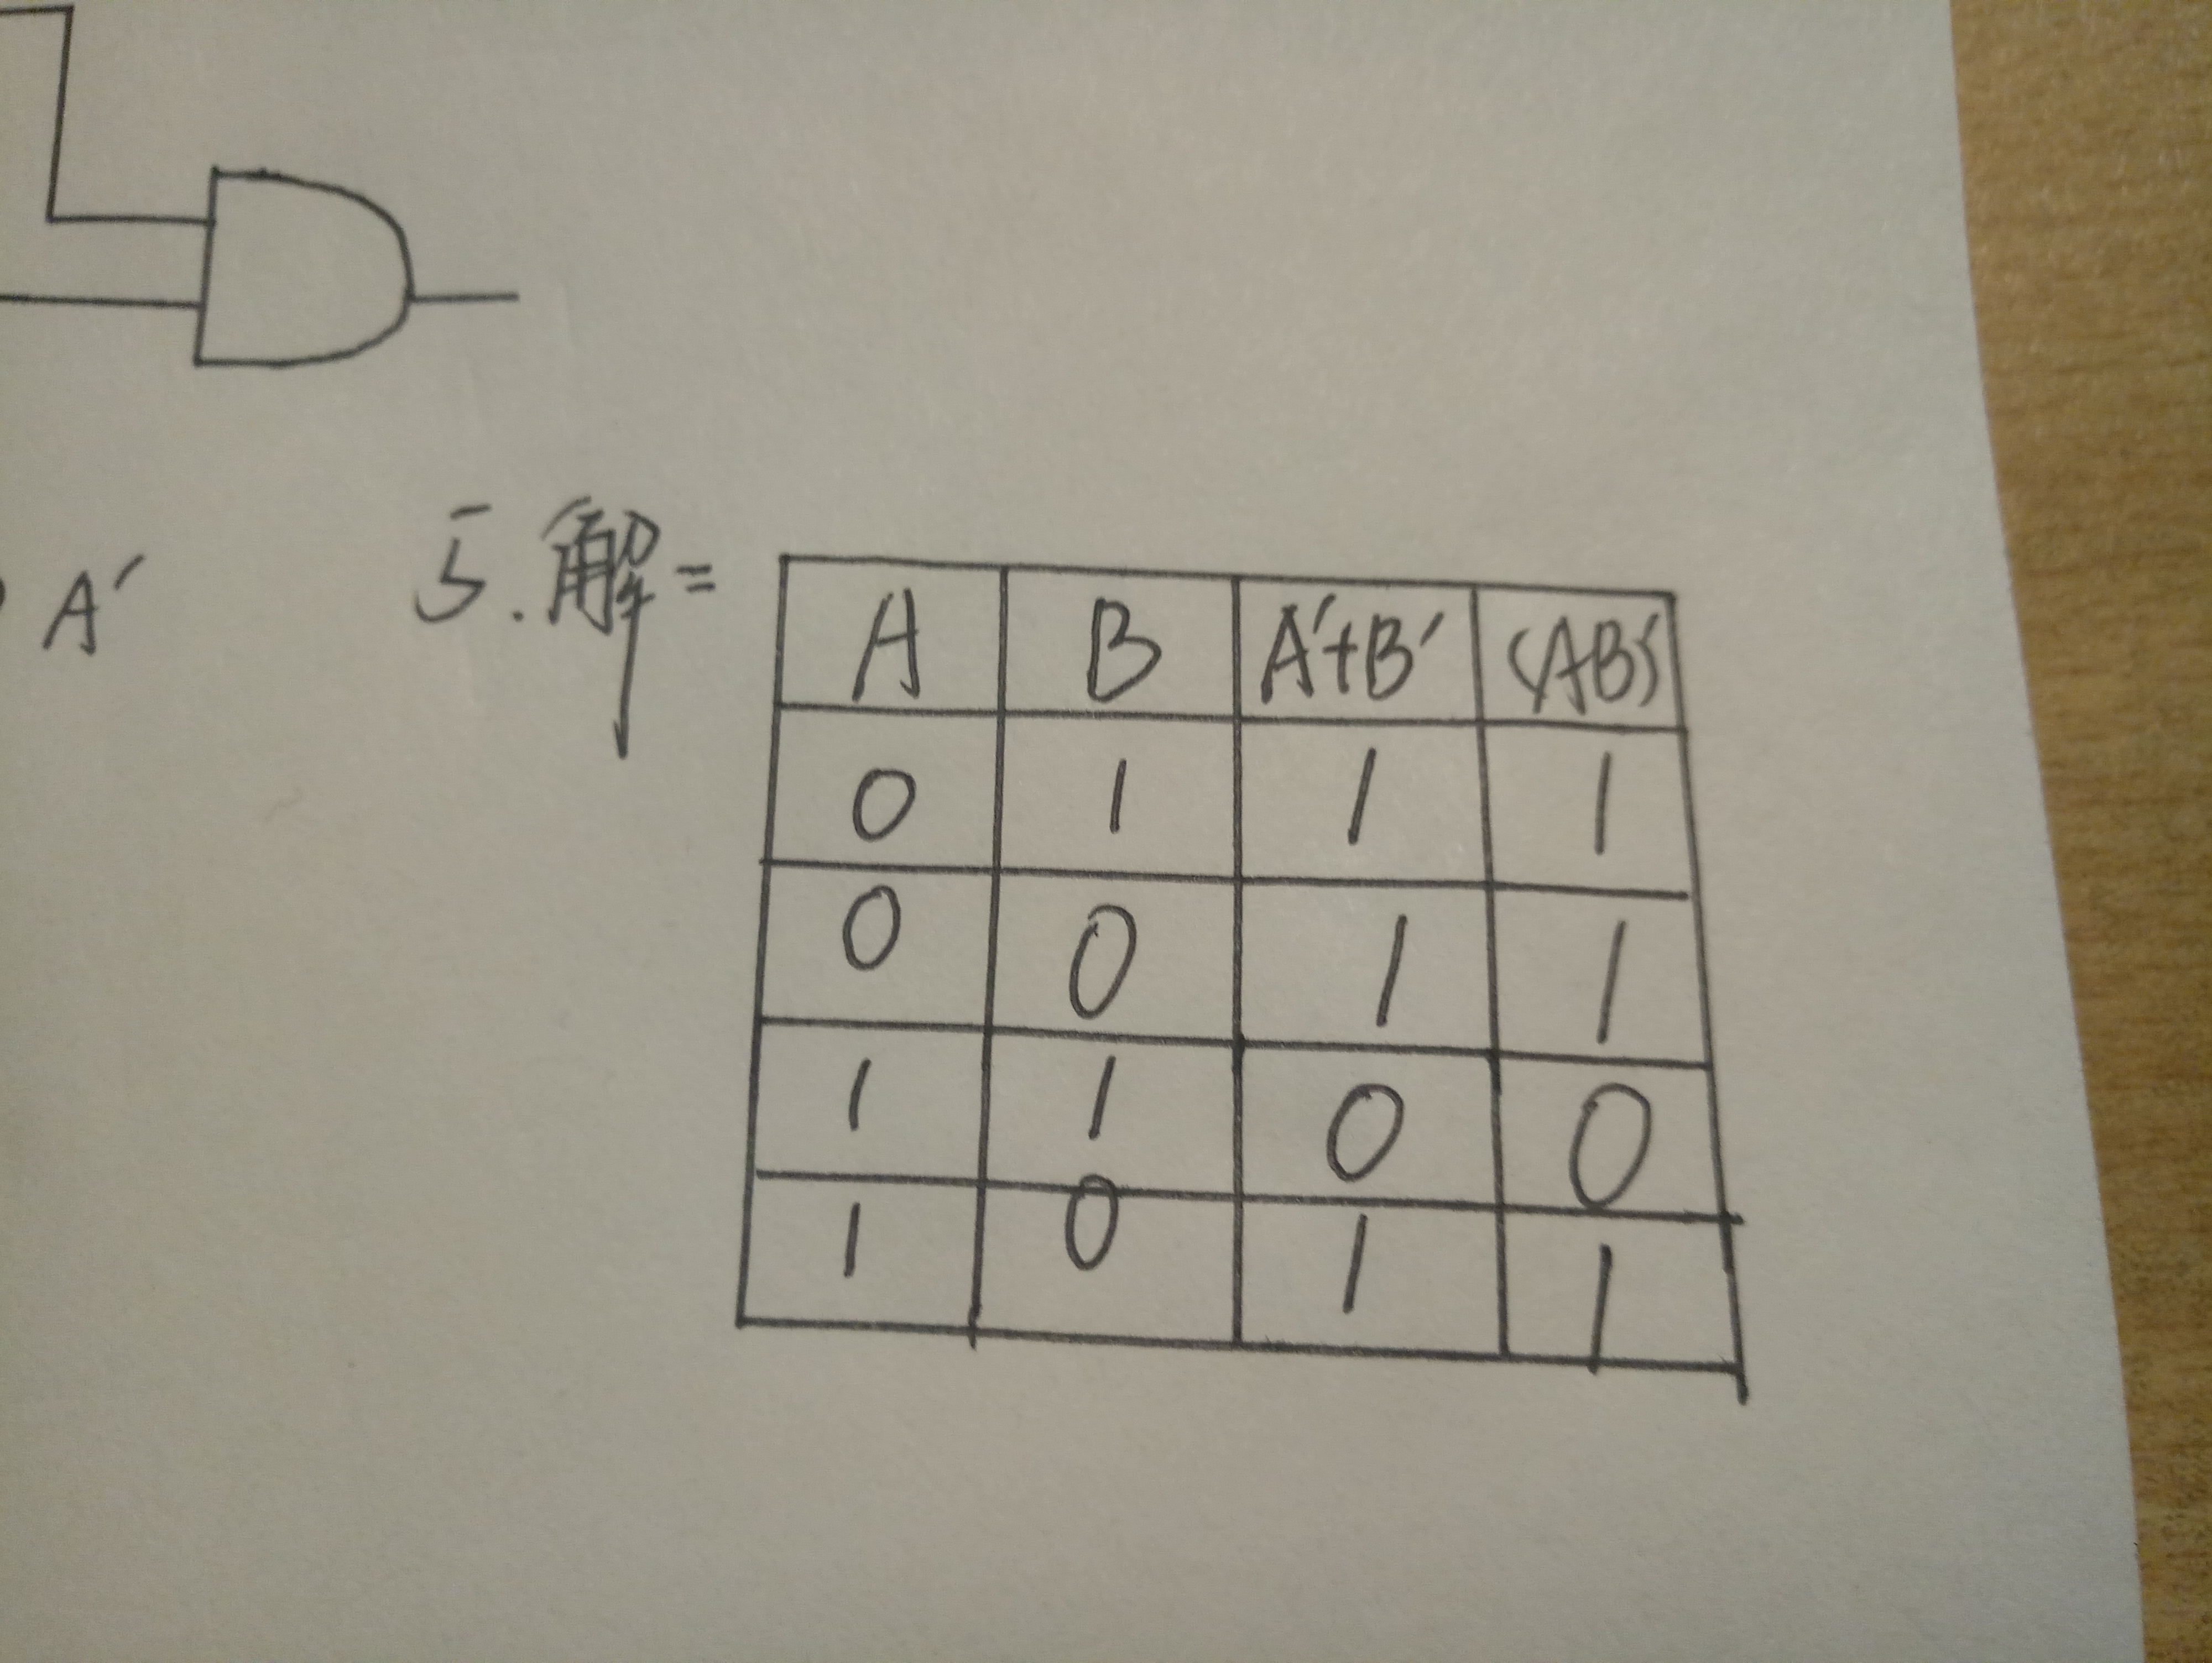 A′
5.解=
A B A′+B′ (AB)′
0 1 1 1
0 0 1 1
1 1 0 0
1 0 1 1